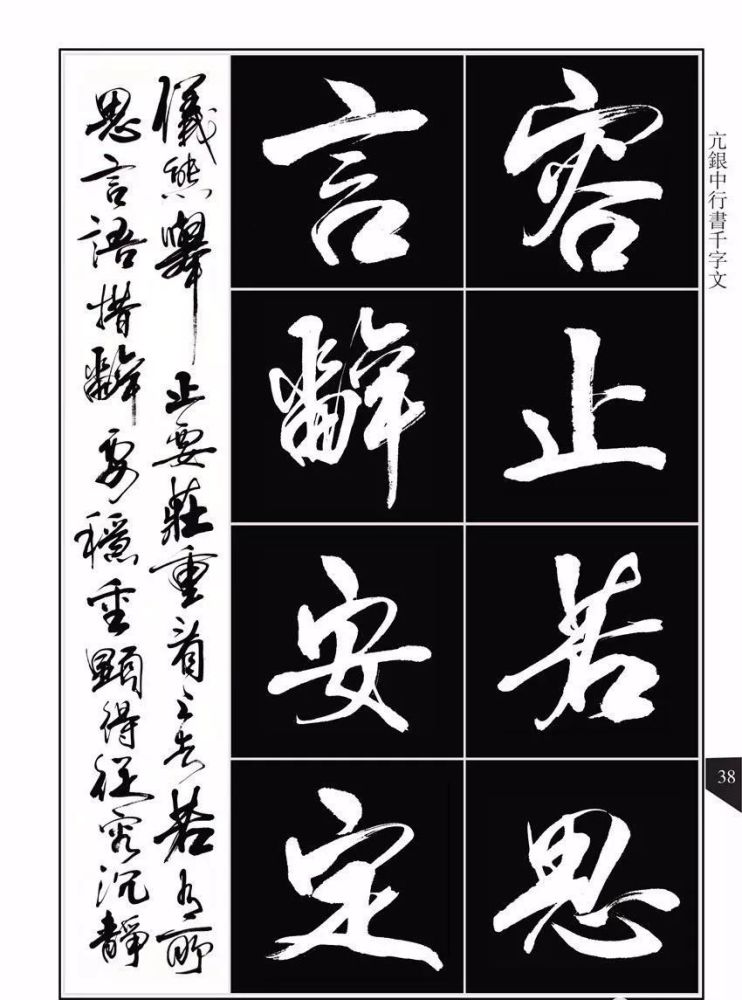 亢銀中行書千字文
38
容止若思
言辭安定
儀態舉止要莊重看上去若有所
思言語措辭要穩重顯得從容沉靜